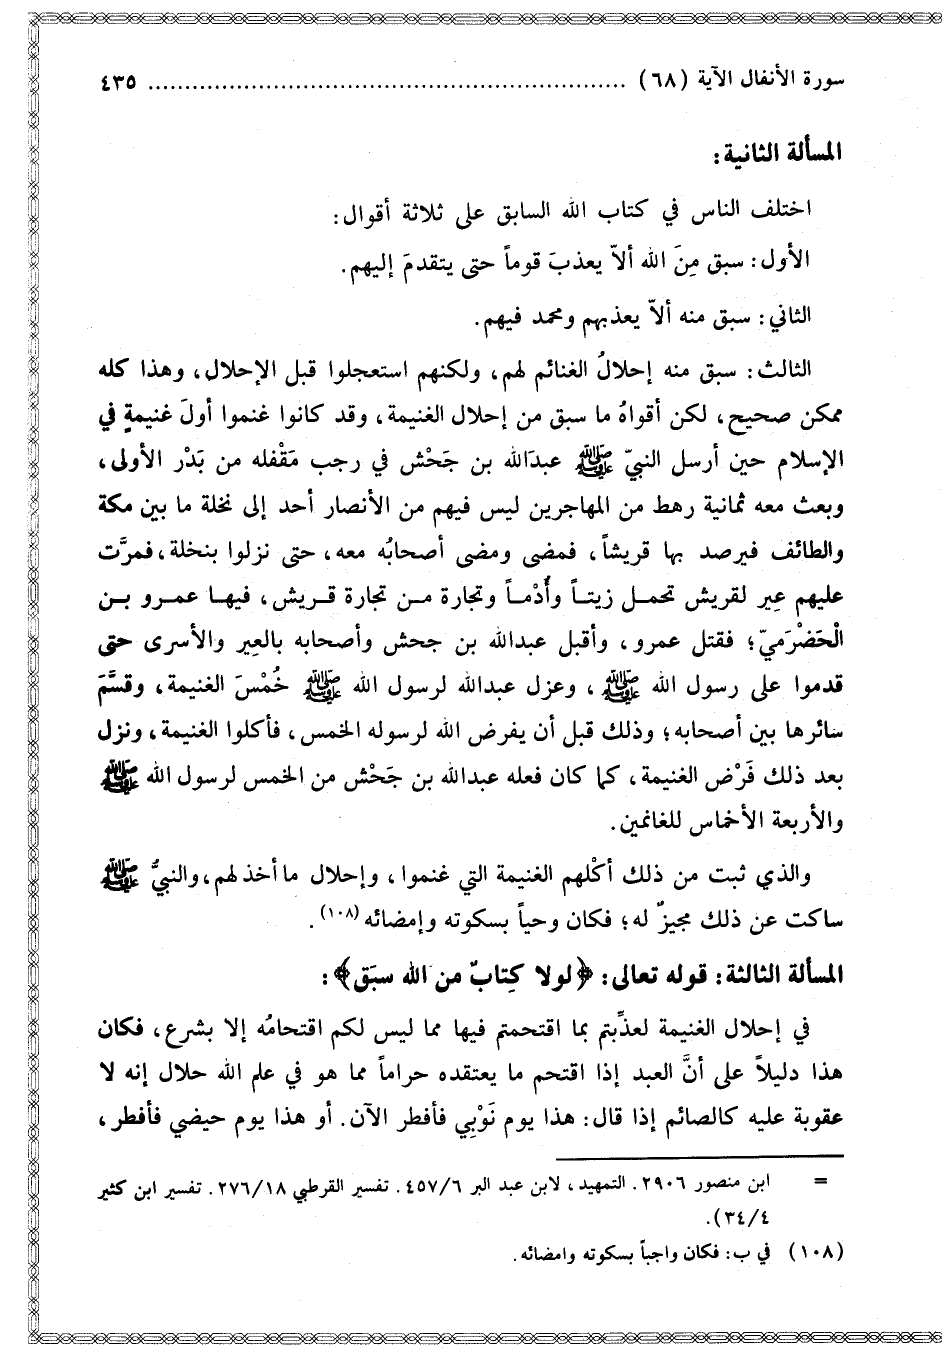 سورة الأنفال الآية (٦٨) ................................................................ ٤٣٥
المسألة الثانية:
اختلف الناس في كتاب الله السابق على ثلاثة أقوال:
الأول: سبق مِنَ الله ألاّ يعذبَ قوماً حتى يتقدمَ إليهم.
الثاني: سبق منه ألاّ يعذبهم ومحمد فيهم.
الثالث: سبق منه إحلالُ الغنائم لهم، ولكنهم استعجلوا قبل الإحلال، وهذا كله
ممكن صحيح، لكن أقواهُ ما سبق من إحلال الغنيمة، وقد كانوا غنموا أولَ غنيمةٍ في
الإسلام حين أرسل النبيّ ﷺ عبدَالله بن جَحْش في رجب مَقْفله من بَدْر الأولى،
وبعث معه ثمانية رهط من المهاجرين ليس فيهم من الأنصار أحد إلى نخلة ما بين مكة
والطائف فيرصد بها قريشاً، فمضى ومضى أصحابُه معه، حتى نزلوا بنخلة، فمرَّت
عليهم عِير لقريش تحمـل زيتـاً وأُدْمـاً وتجارة مـن تجارة قريش، فيهـا عمـرو بـن
الْحَضْرَميّ؛ فقتل عمرو، وأقبل عبدالله بن جحش وأصحابه بالعِير والأسرى حتى
قدموا على رسول الله ﷺ، وعزل عبدالله لرسول الله ﷺ خُمْسَ الغنيمة، وقسَّمَ
سائرها بين أصحابه؛ وذلك قبل أن يفرض الله لرسوله الخمس، فأكلوا الغنيمة، ونزل
بعد ذلك فَرْض الغنيمة، كما كان فعله عبدالله بن جَحْش من الخمس لرسول الله ﷺ
والأربعة الأخماس للغانمين.
والذي ثبت من ذلك أكْلهم الغنيمة التي غنموا، وإحلال ما أخذ لهم، والنبيُّ ﷺ
ساكت عن ذلك مجيزٌ له؛ فكان وحياً بسكوته وإمضائه(١٠٨).
المسألة الثالثة: قوله تعالى: ﴿لولا كِتابٌ من الله سبَق﴾:
في إحلال الغنيمة لعذِّبتم بما اقتحمتم فيها مما ليس لكم اقتحامُه إلا بشرع، فكان
هذا دليلاً على أنَّ العبد إذا اقتحم ما يعتقده حراماً مما هو في علم الله حلال إنه لا
عقوبة عليه كالصائم إذا قال: هذا يوم نَوْبِي فأفطر الآن. أو هذا يوم حيضي فأفطر،
= ابن منصور ٢٩٠٦. التمهيد، لابن عبد البر ٤٥٧/٦. تفسير القرطبي ٢٧٦/١٨. تفسير ابن كثير
٣٤/٤).
(١٠٨) في ب: فكان واجباً بسكوته وامضائه.